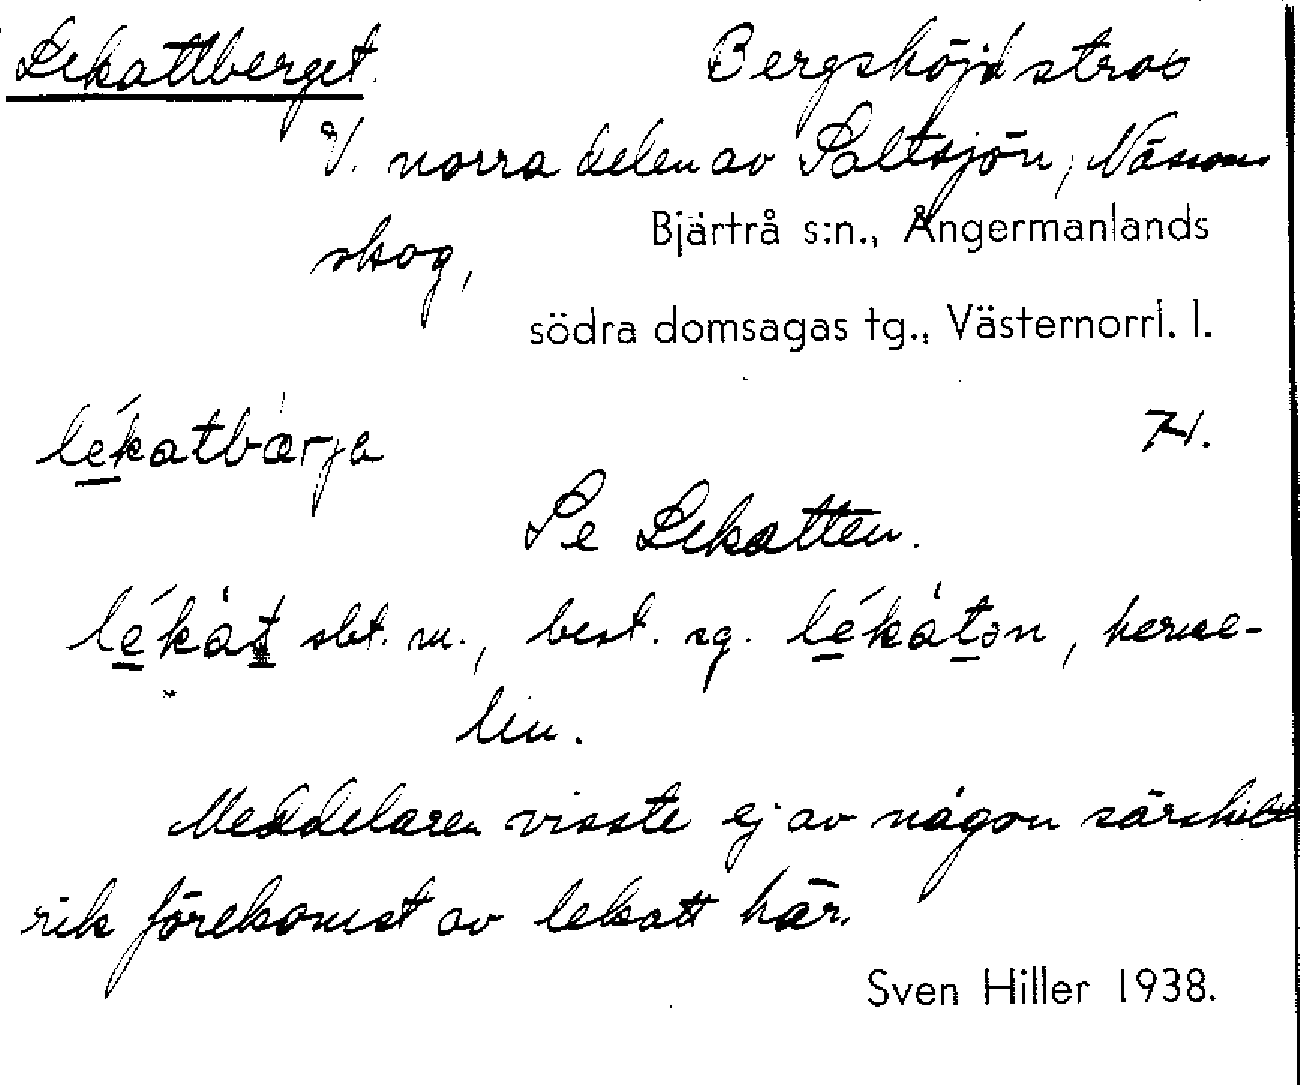 Lekattberget. Bergshöjd strax
V. norra delen av Saltsjön, Nässom
skog, Bjärtrå s:n., Ångermanlands
södra domsagas tg., Västernorrl. l.
lékatbærja 74.
Se Lekatten.
lékàt sbt. m., best. sg. lékàtən, herme-
lin.
Meddelaren visste ej av någon särskilt
rik förekomst av lekatt här.
Sven Hiller 1938.